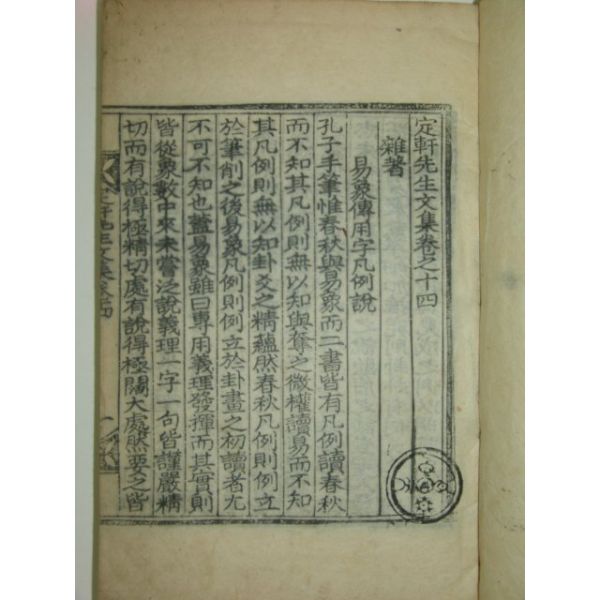 定軒先生文集卷之十四
雜著
易象傳用字凡例說
孔子手筆惟春秋與易象而二書皆有凡例讀春秋
而不知其凡例則無以知與奪之微權讀易而不知
其凡例則無以知卦爻之精蘊然春秋凡例則例立
於筆削之後易象凡例則例立於卦畫之初讀者尤
不可不知也蓋易象雖曰專用義理發揮而其實則
皆從象數中來未嘗泛說義理一字一句皆謹嚴精
切而有說得極精切處有說得極闊大處然要之皆